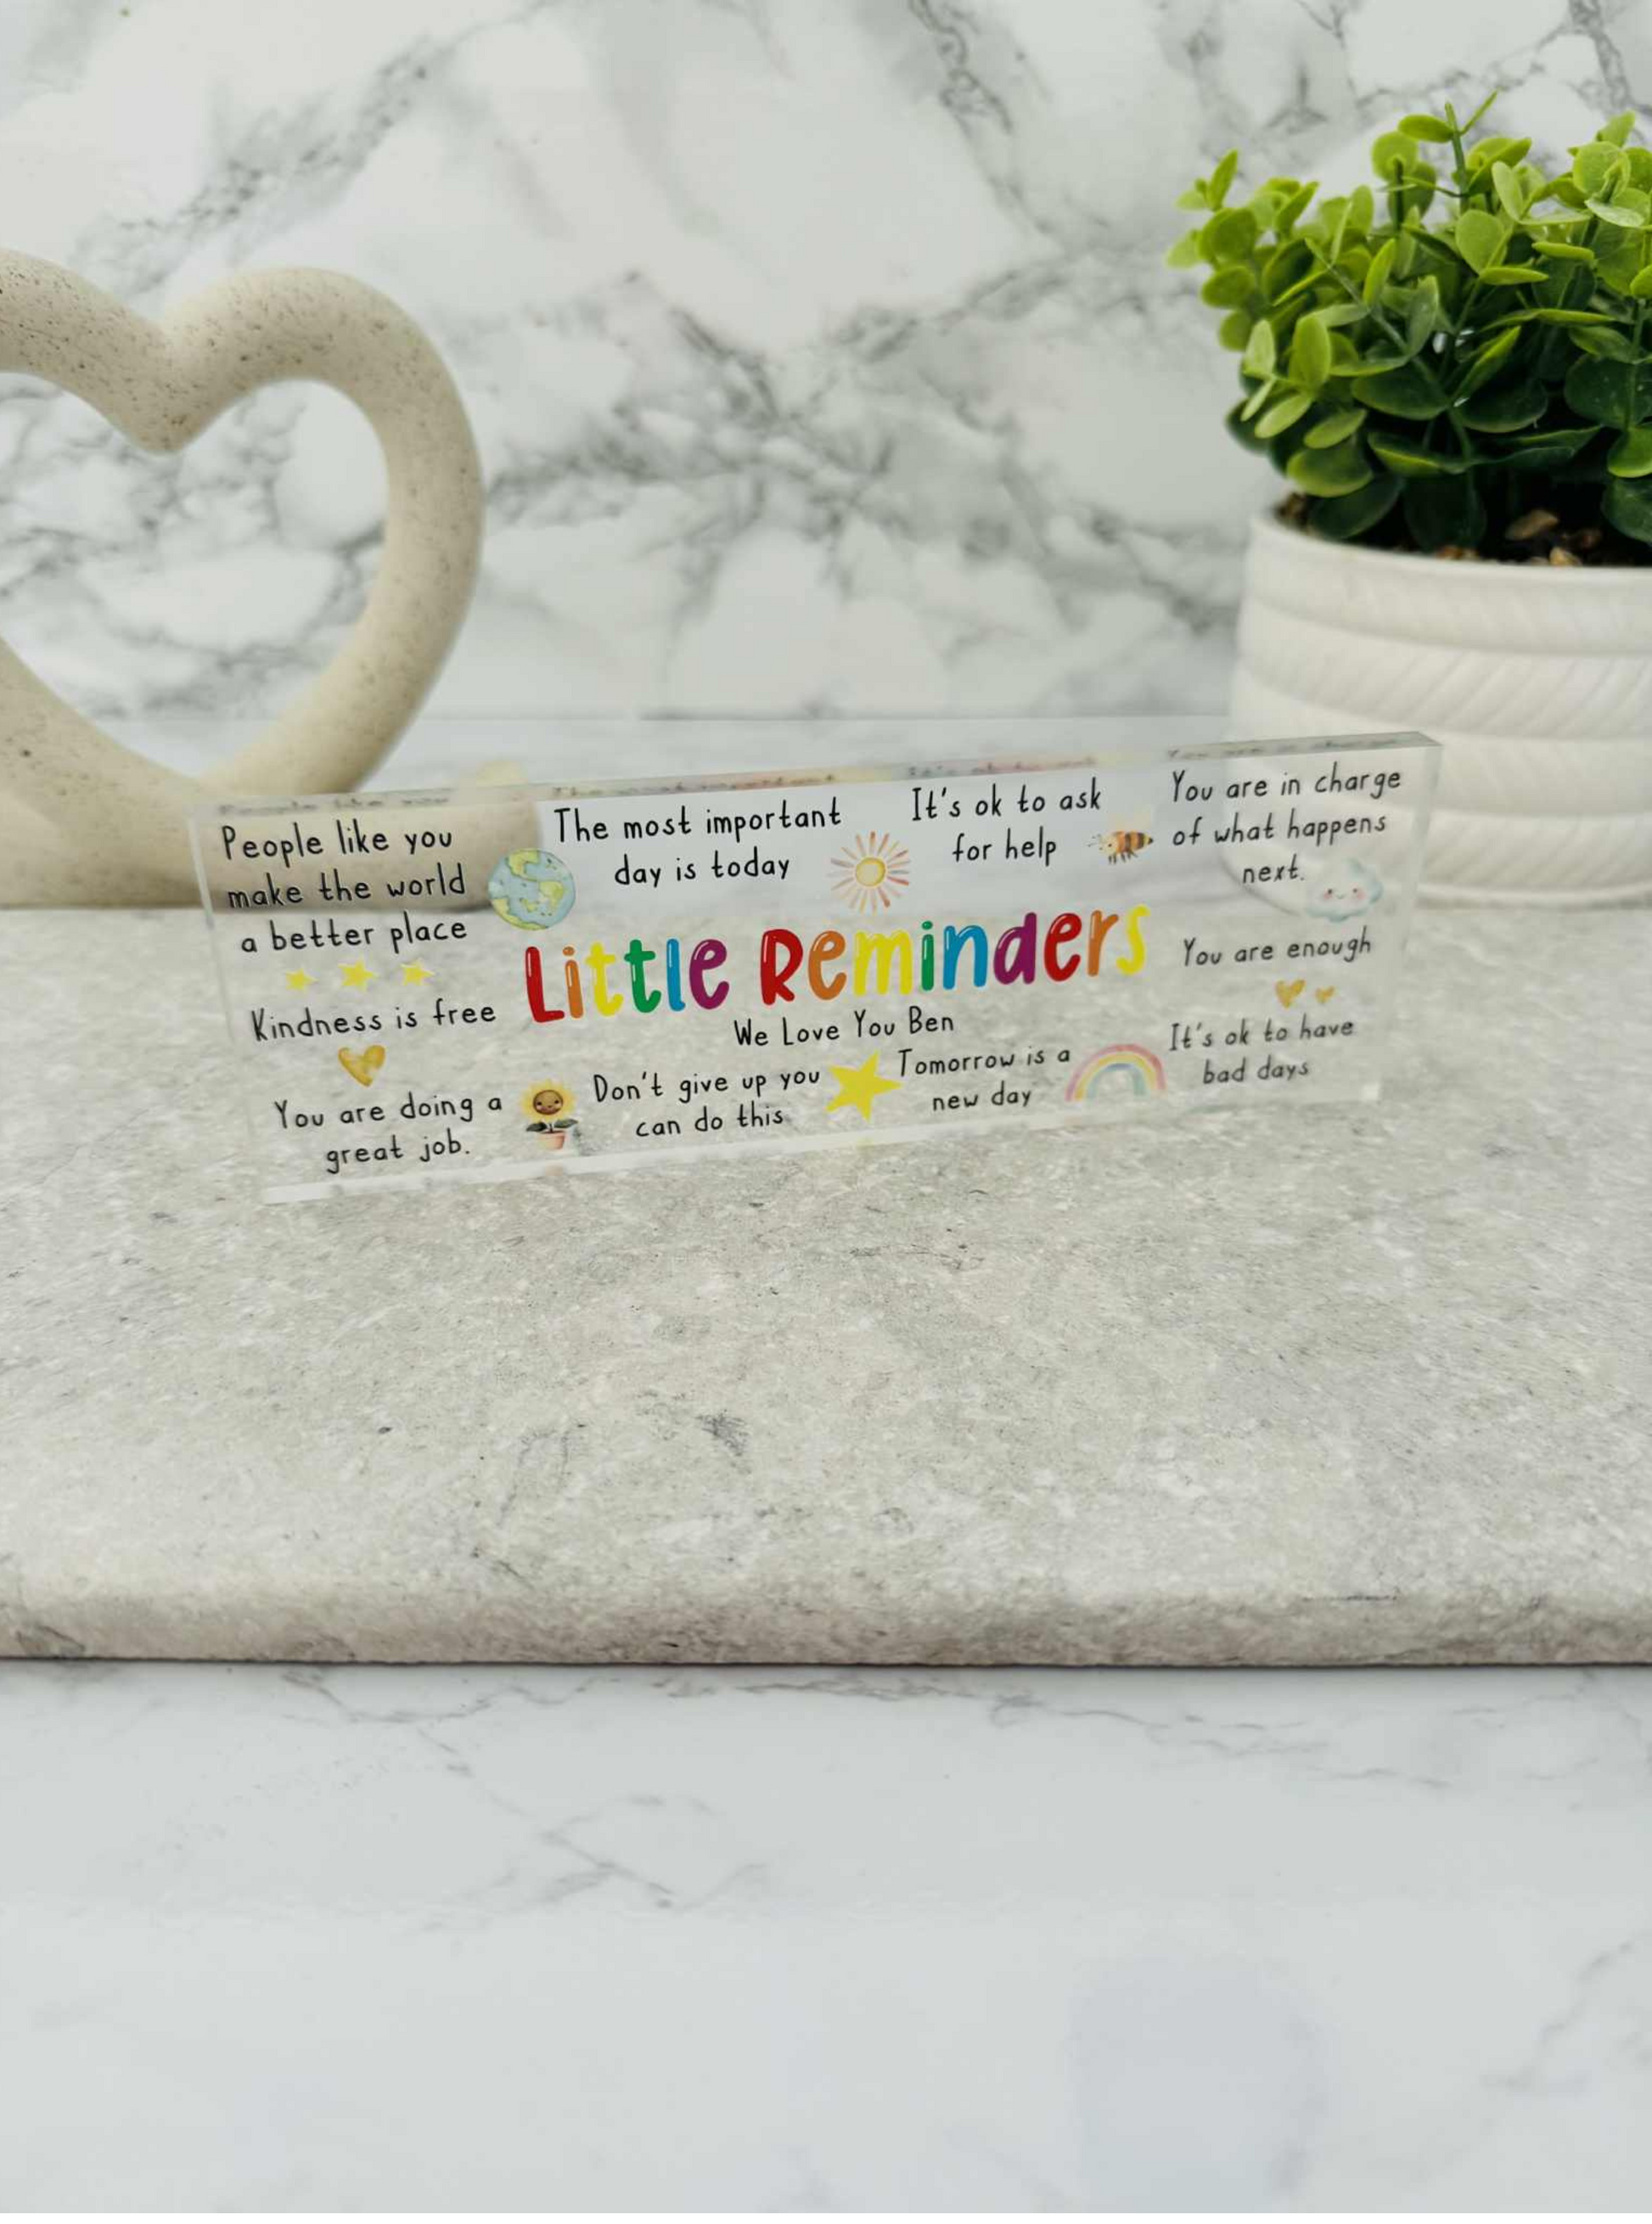 People like you
make the world
a better place
The most important
day is today
It's ok to ask
for help
You are in charge
of what happens
next.
Little Reminders
We Love You Ben
Kindness is free
You are enough
You are doing a
great job.
Don't give up you
can do this
Tomorrow is a
new day
It's ok to have
bad days